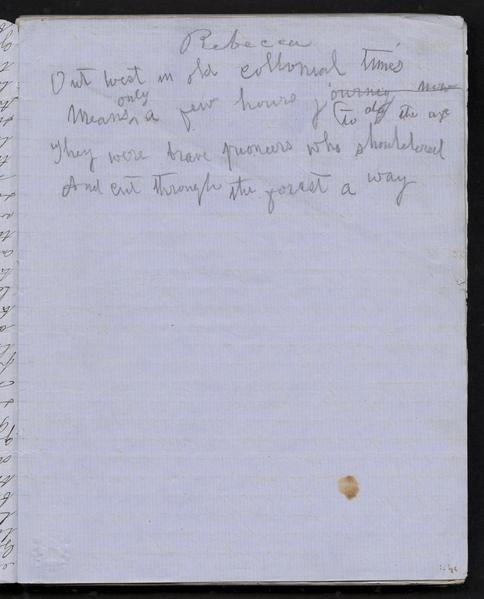 Rebecca
Out west in old collonial times
Means only a few hours journey now
to day
They were brave pioneers who shouldered the axe
And cut through the forest a way